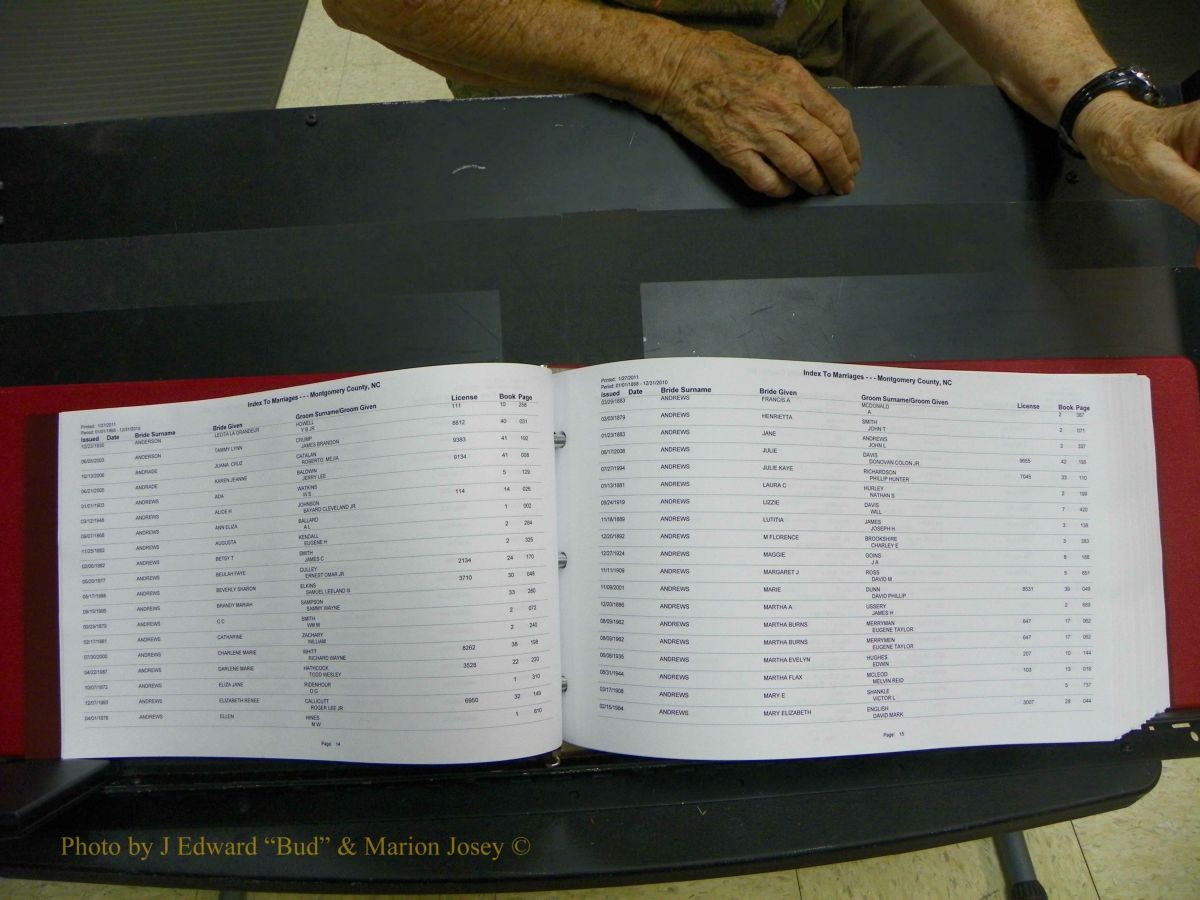 Index To Marriages - - - Montgomery County, NC
Printed: 1/27/2011
Period: 01/01/1868 - 12/31/2010
Issued Date Bride Surname Bride Given Groom Surname/Groom Given License Book Page
ANDERSON LEOTA LA GRANDEUR HOWELL 111 10 256
Y B JR
06/05/2003 ANDERSON TAMMY LYNN CRUMP 8812 40 031
JAMES BRANDON
10/13/2006 ANDRADE JUANA CRUZ CATALAN 9383 41 192
ROBERTO MEJIA
06/21/2005 ANDRADE KAREN JEANNE BALDWIN 9134 41 008
JERRY LEE
01/01/1903 ANDREWS ADA WATKINS 5 129
W S
03/12/1948 ANDREWS ALICE H JOHNSON 114 14 026
BAYARD CLEVELAND JR
ANDREWS ANN ELIZA BALLARD 1 002
A L
11/25/1882 ANDREWS AUGUSTA KENDALL 2 284
EUGENE H
ANDREWS BETSY T SMITH 2 325
JAMES C
05/20/1977 ANDREWS BEULAH FAYE CULLEY 2134 24 170
ERNEST OMAR JR
ANDREWS BEVERLY SHARON ELKINS 3710 30 048
SAMUEL LEELAND III
ANDREWS BRANDY MARIAH SAMPSON 33 280
SAMMY WAYNE
ANDREWS C C SMITH 2 072
WM M
02/17/1881 ANDREWS CATHARINE ZACHARY 2 240
WILLIAM
07/30/2000 ANDREWS CHARLENE MARIE WHITT 8262 38 198
RICHARD WAYNE
04/22/1987 ANDREWS DARLENE MARIE HATHCOCK 3528 22 220
TODD WESLEY
10/07/1872 ANDREWS ELIZA JANE RIDENHOUR 1 310
D G
12/07/1993 ANDREWS ELIZABETH RENEE CALLICUTT 6950 32 149
ROGER LEE JR
04/01/1876 ANDREWS ELLEN HINES 1 610
M W
Page: 14
Index To Marriages - - - Montgomery County, NC
Printed: 1/27/2011
Period: 01/01/1868 - 12/31/2010
Issued Date Bride Surname Bride Given Groom Surname/Groom Given License Book Page
03/29/1883 ANDREWS FRANCIS A MCDONALD 2 387
A
03/03/1879 ANDREWS HENRIETTA SMITH 2 071
JOHN T
01/23/1883 ANDREWS JANE ANDREWS 2 337
JOHN L
06/17/2008 ANDREWS JULIE DAVIS 9655 42 195
DONOVAN COLON JR
07/27/1994 ANDREWS JULIE KAYE RICHARDSON 7045 33 110
PHILLIP HUNTER
01/13/1881 ANDREWS LAURA C HURLEY 2 199
NATHAN S
09/24/1919 ANDREWS LIZZIE DAVIS 7 420
WILL
11/18/1889 ANDREWS LUTITIA JAMES 3 138
JOSEPH H
12/20/1892 ANDREWS M FLORENCE BROOKSHIRE 3 383
CHARLEY E
12/27/1924 ANDREWS MAGGIE GOINS 8 188
J A
11/11/1909 ANDREWS MARGARET J ROSS 5 851
DAVID M
11/09/2001 ANDREWS MARIE DUNN 8531 39 049
DAVID PHILLIP
12/20/1886 ANDREWS MARTHA A USSERY 2 689
JAMES H
08/09/1962 ANDREWS MARTHA BURNS MERRYMAN 647 17 062
EUGENE TAYLOR
08/09/1962 ANDREWS MARTHA BURNS MERRYMEN 647 17 062
EUGENE TAYLOR
06/08/1935 ANDREWS MARTHA EVELYN HUGHES 207 10 144
EDWIN
08/31/1944 ANDREWS MARTHA FLAX MCLEOD 103 13 018
MELVIN REID
03/17/1908 ANDREWS MARY E SHANKLE 5 737
VICTOR L
02/15/1984 ANDREWS MARY ELIZABETH ENGLISH 3007 28 044
DAVID MARK
Page: 15
Photo by J Edward “Bud” & Marion Josey ©